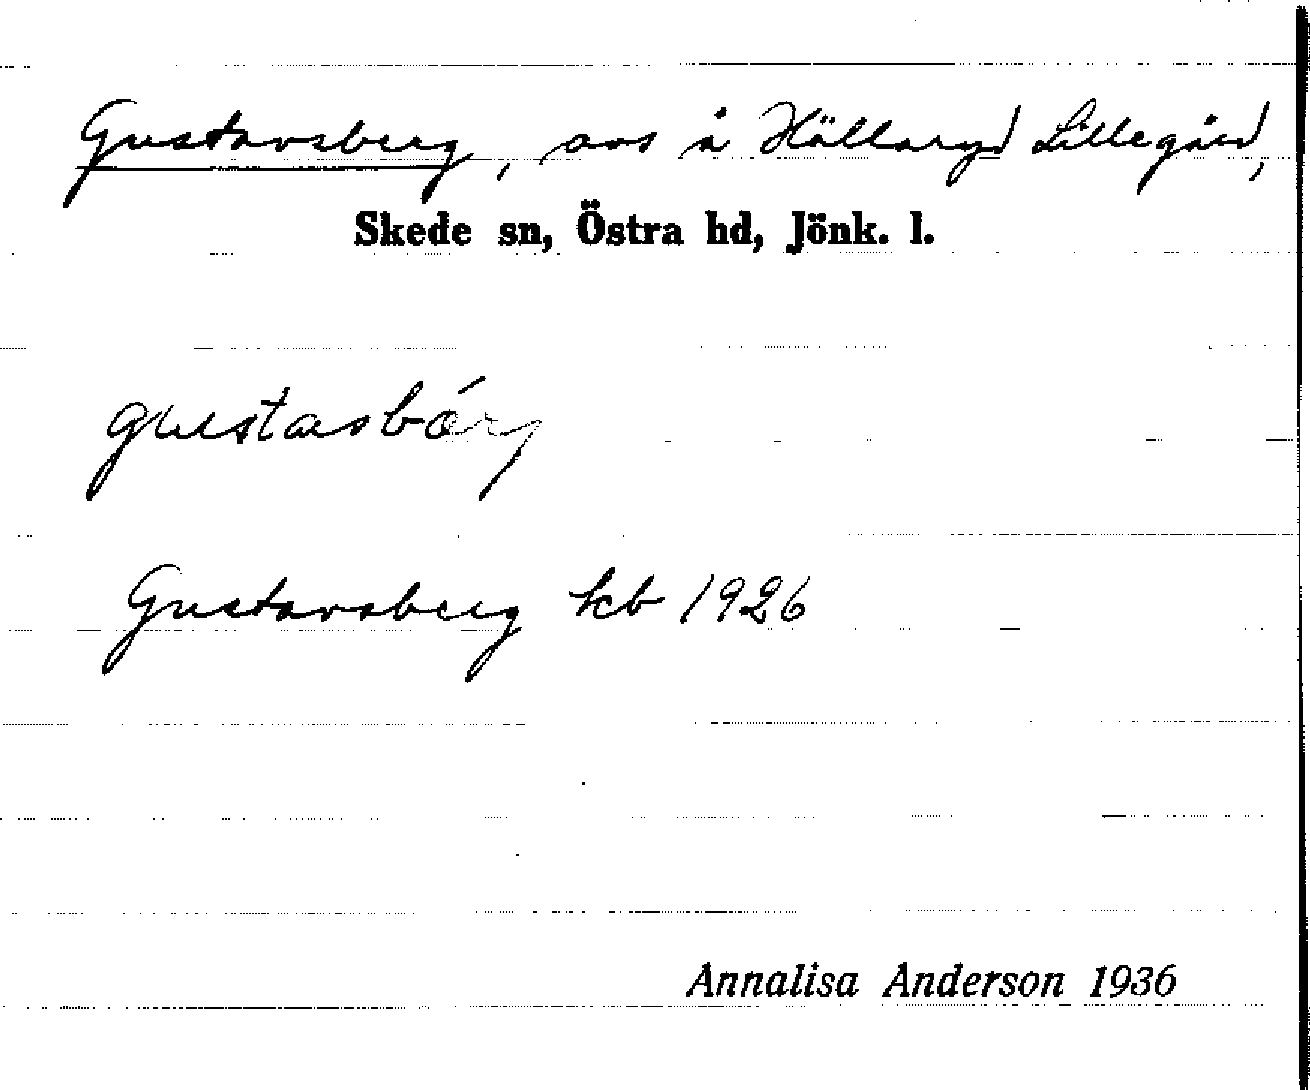 Gustavsberg, avs å Hällaryd Lillegård,
Skede sn, Östra hd, Jönk. l.
gustasbárj
Gustavsberg kb 1926
Annalisa Anderson 1936